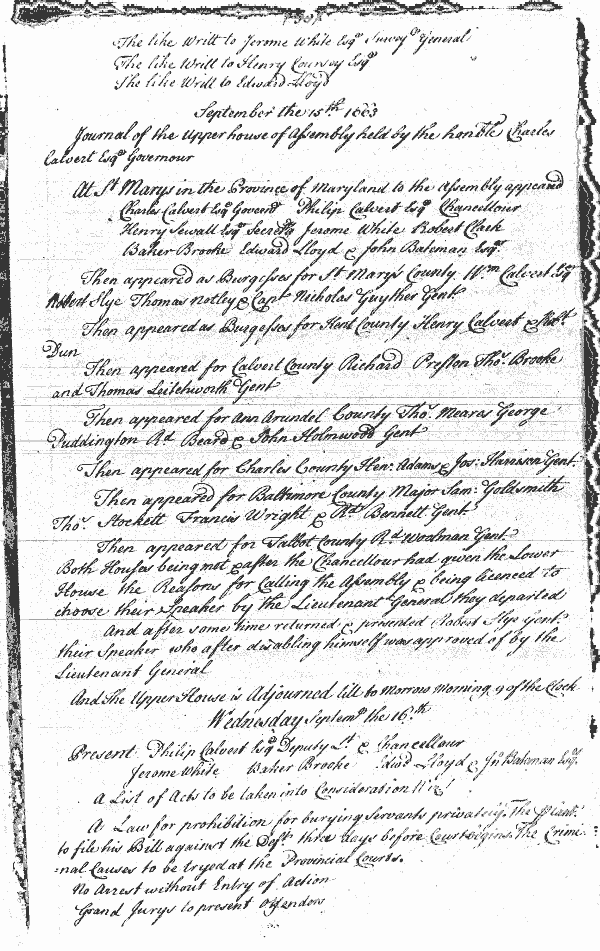 The like Writt to Jerome White Esqr Surveyor General
The like Writt to Henry Coursey Esqr
The like Writt to Edward Lloyd
September the 15th 1663
Journal of the Upper house of Assembly held by the honble Charles
Calvert Esqr Governour
At St Marys in the Province of Maryland to the Assembly appeared
Charles Calvert Esqr Governr Philip Calvert Esqr Chancellour
Henry Sewall Esqr Secretry Jerome White Robert Clark
Baker Brooke Edward Lloyd & John Bateman Esqr
Then appeared as Burgesses for St Mary's County Wm Calvert Esqr
Robert Slye Thomas Notley & Capt Nicholas Guyther Gent.
Then appeared as Burgesses for Kent County Henry Calvert &
Dun
Then appeared for Calvert County Richard Preston Tho. Brooke
and Thomas Leitchworth Gent
Then appeared for Ann Arundel County Tho. Meares George
Puddington Rd Beard & John Homwood Gent
Then appeared for Charles County Hen: Adams & Jos: Harrison Gent.
Then appeared for Baltimore County Major Sam: Goldsmith
Tho. Stockett Francis Wright & Rd Bennett Gent.
Then appeared for Talbot County Rd Woolman Gent.
Both Houses being met & after the Chancellour had given the Lower
House the Reasons for Calling the Assembly & being licenced to
choose their Speaker by the Lieutenant General they departed
And after some time returned & presented Robert Slye Gent.
their Speaker who after disabling himself was approved of by the
Lieutenant General
And the Upper House is Adjourned till to Morrow Morning 9 of the Clock
Wednesday Septemr the 16th
Present Philip Calvert Esqr Deputy Lt & Chancellour
Jerome White Baker Brooke Edwd Lloyd & Jno Bateman Esqr.
A List of Acts to be taken into Consideration
A Law for prohibition for burying Servants privately. The Plant.
to file his Bill against the Deft three days before Court begins. The Crime-
=nal Causes to be tryed at the Provincial Courts.
No Arrest without Entry of Action
Grand Jurys to present Offendors